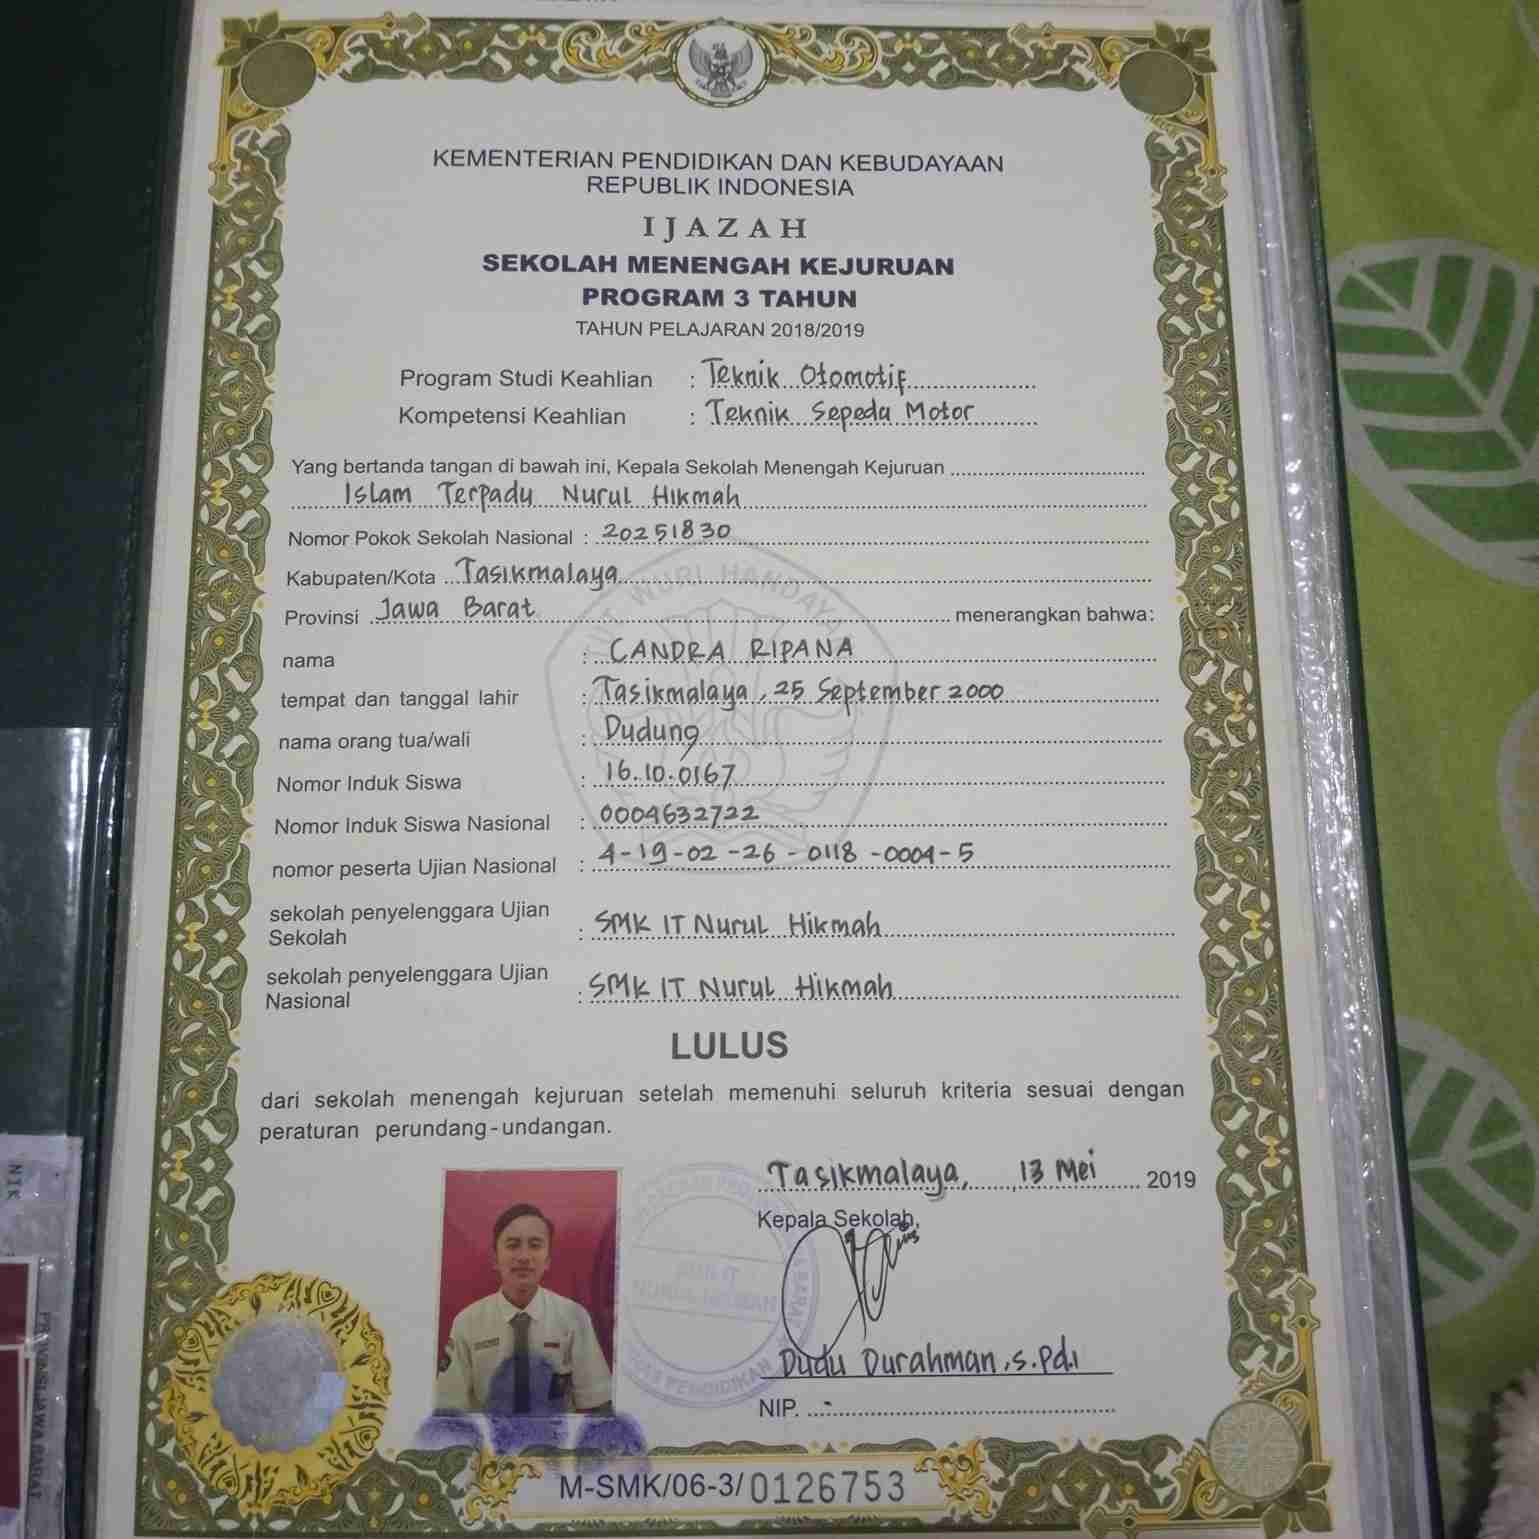 KEMENTERIAN PENDIDIKAN DAN KEBUDAYAAN
REPUBLIK INDONESIA
IJAZAH
SEKOLAH MENENGAH KEJURUAN
PROGRAM 3 TAHUN
TAHUN PELAJARAN 2018/2019
Program Studi Keahlian : Teknik Otomotif
Kompetensi Keahlian : Teknik Sepeda Motor
Yang bertanda tangan di bawah ini, Kepala Sekolah Menengah Kejuruan
Islam Terpadu Nurul Hikmah
Nomor Pokok Sekolah Nasional : 20251830
Kabupaten/Kota Tasikmalaya
Provinsi Jawa Barat menerangkan bahwa:
nama : CANDRA RIPANA
tempat dan tanggal lahir : Tasikmalaya, 25 September 2000
nama orang tua/wali : Dudung
Nomor Induk Siswa : 16.10.0167
Nomor Induk Siswa Nasional : 0004632722
nomor peserta Ujian Nasional : 4-19-02-26-0118-0004-5
sekolah penyelenggara Ujian
Sekolah : SMK IT Nurul Hikmah
sekolah penyelenggara Ujian
Nasional : SMK IT Nurul Hikmah
LULUS
dari sekolah menengah kejuruan setelah memenuhi seluruh kriteria sesuai dengan
peraturan perundang-undangan.
Tasikmalaya, 13 Mei 2019
Kepala Sekolah,
Dudu Durahman, S.Pd.I
NIP. -
M-SMK/06-3/0126753
WURI HANDAYANI
SMK IT
NURUL HIKMAH
NIK
PROVINSI JAWA BARAT